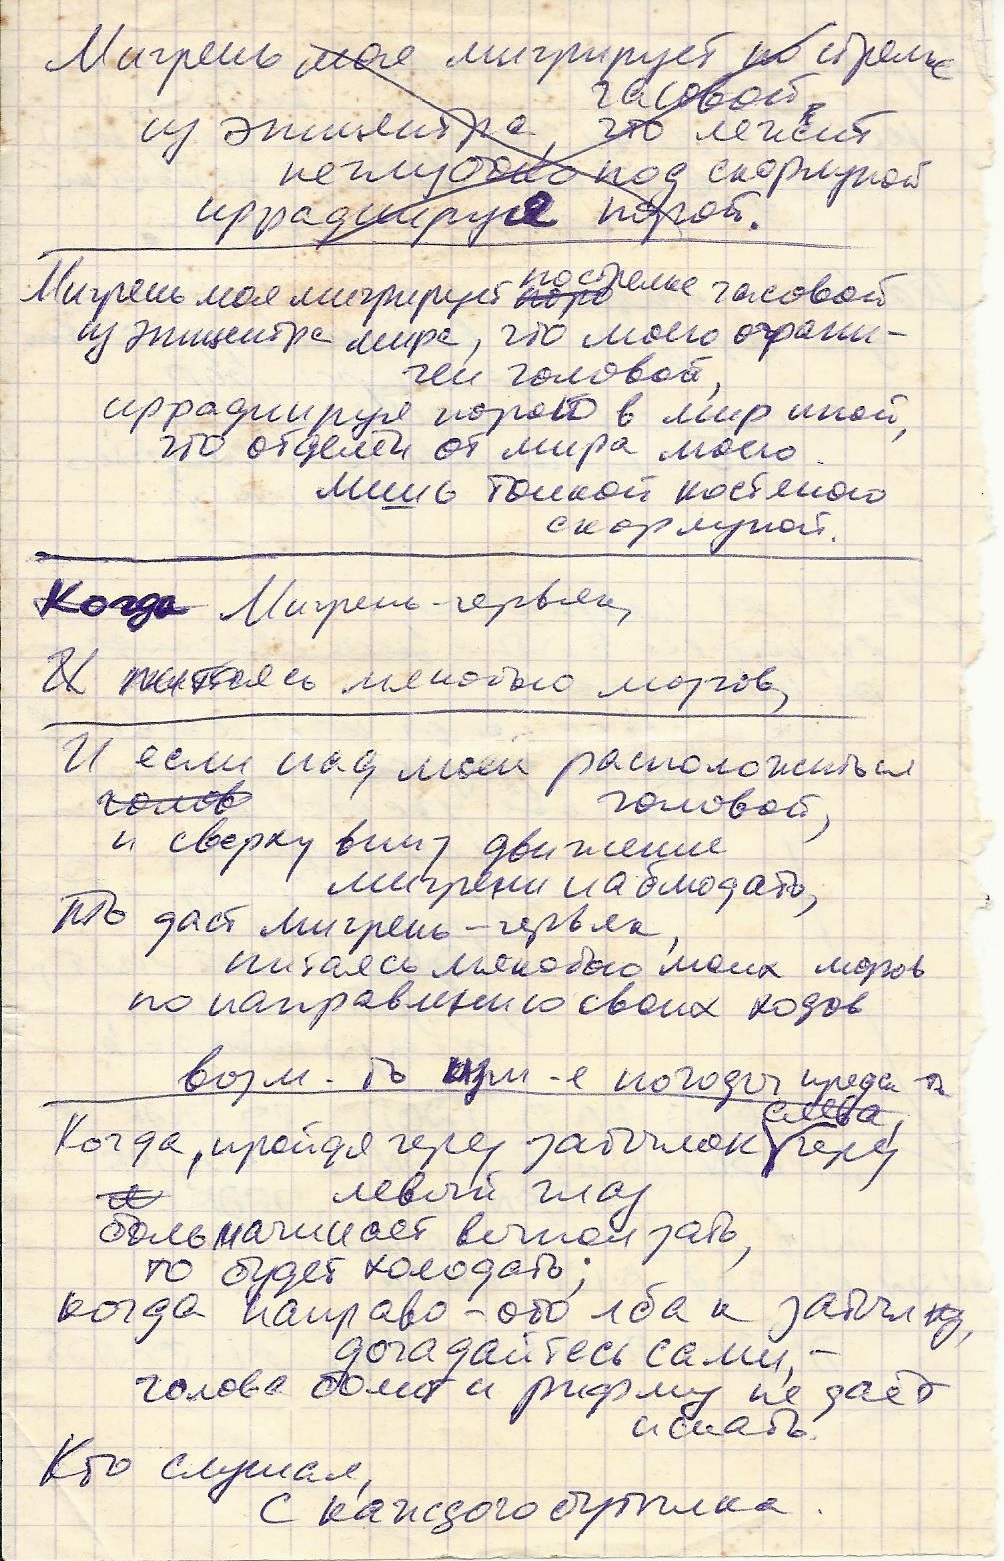 Мигрень моя мигрирует по стрелке
часовой,
из эпицентра, что лежит
неглубоко под скорлупой
иррадиируя порой.
Мигрень моя мигрирует по стрелке часовой
из эпицентра мира, что моею ограни-
чен головой,
иррадиируя порою в мир иной,
что отделён от мира моего
лишь тонкой костяною
скорлупой.
Когда Мигрень-червяк,
И питаясь мякотью мозгов,
И если над моей расположиться
голов головой,
и сверху вниз движение
мигрени наблюдать,
То даст мигрень-червяк,
питаясь мякотью моих мозгов
по направлению своих ходов
возм-ть изм-е погоды предск-ть
слева,
Когда, пройдя через затылок через
левый глаз
боль начинает выползать,
то будет холодать;
когда направо - ото лба к затылку,
догадайтесь сами, -
голова болит и рифму не даёт
искать.
Кто слушал,
С каждого бутылка.